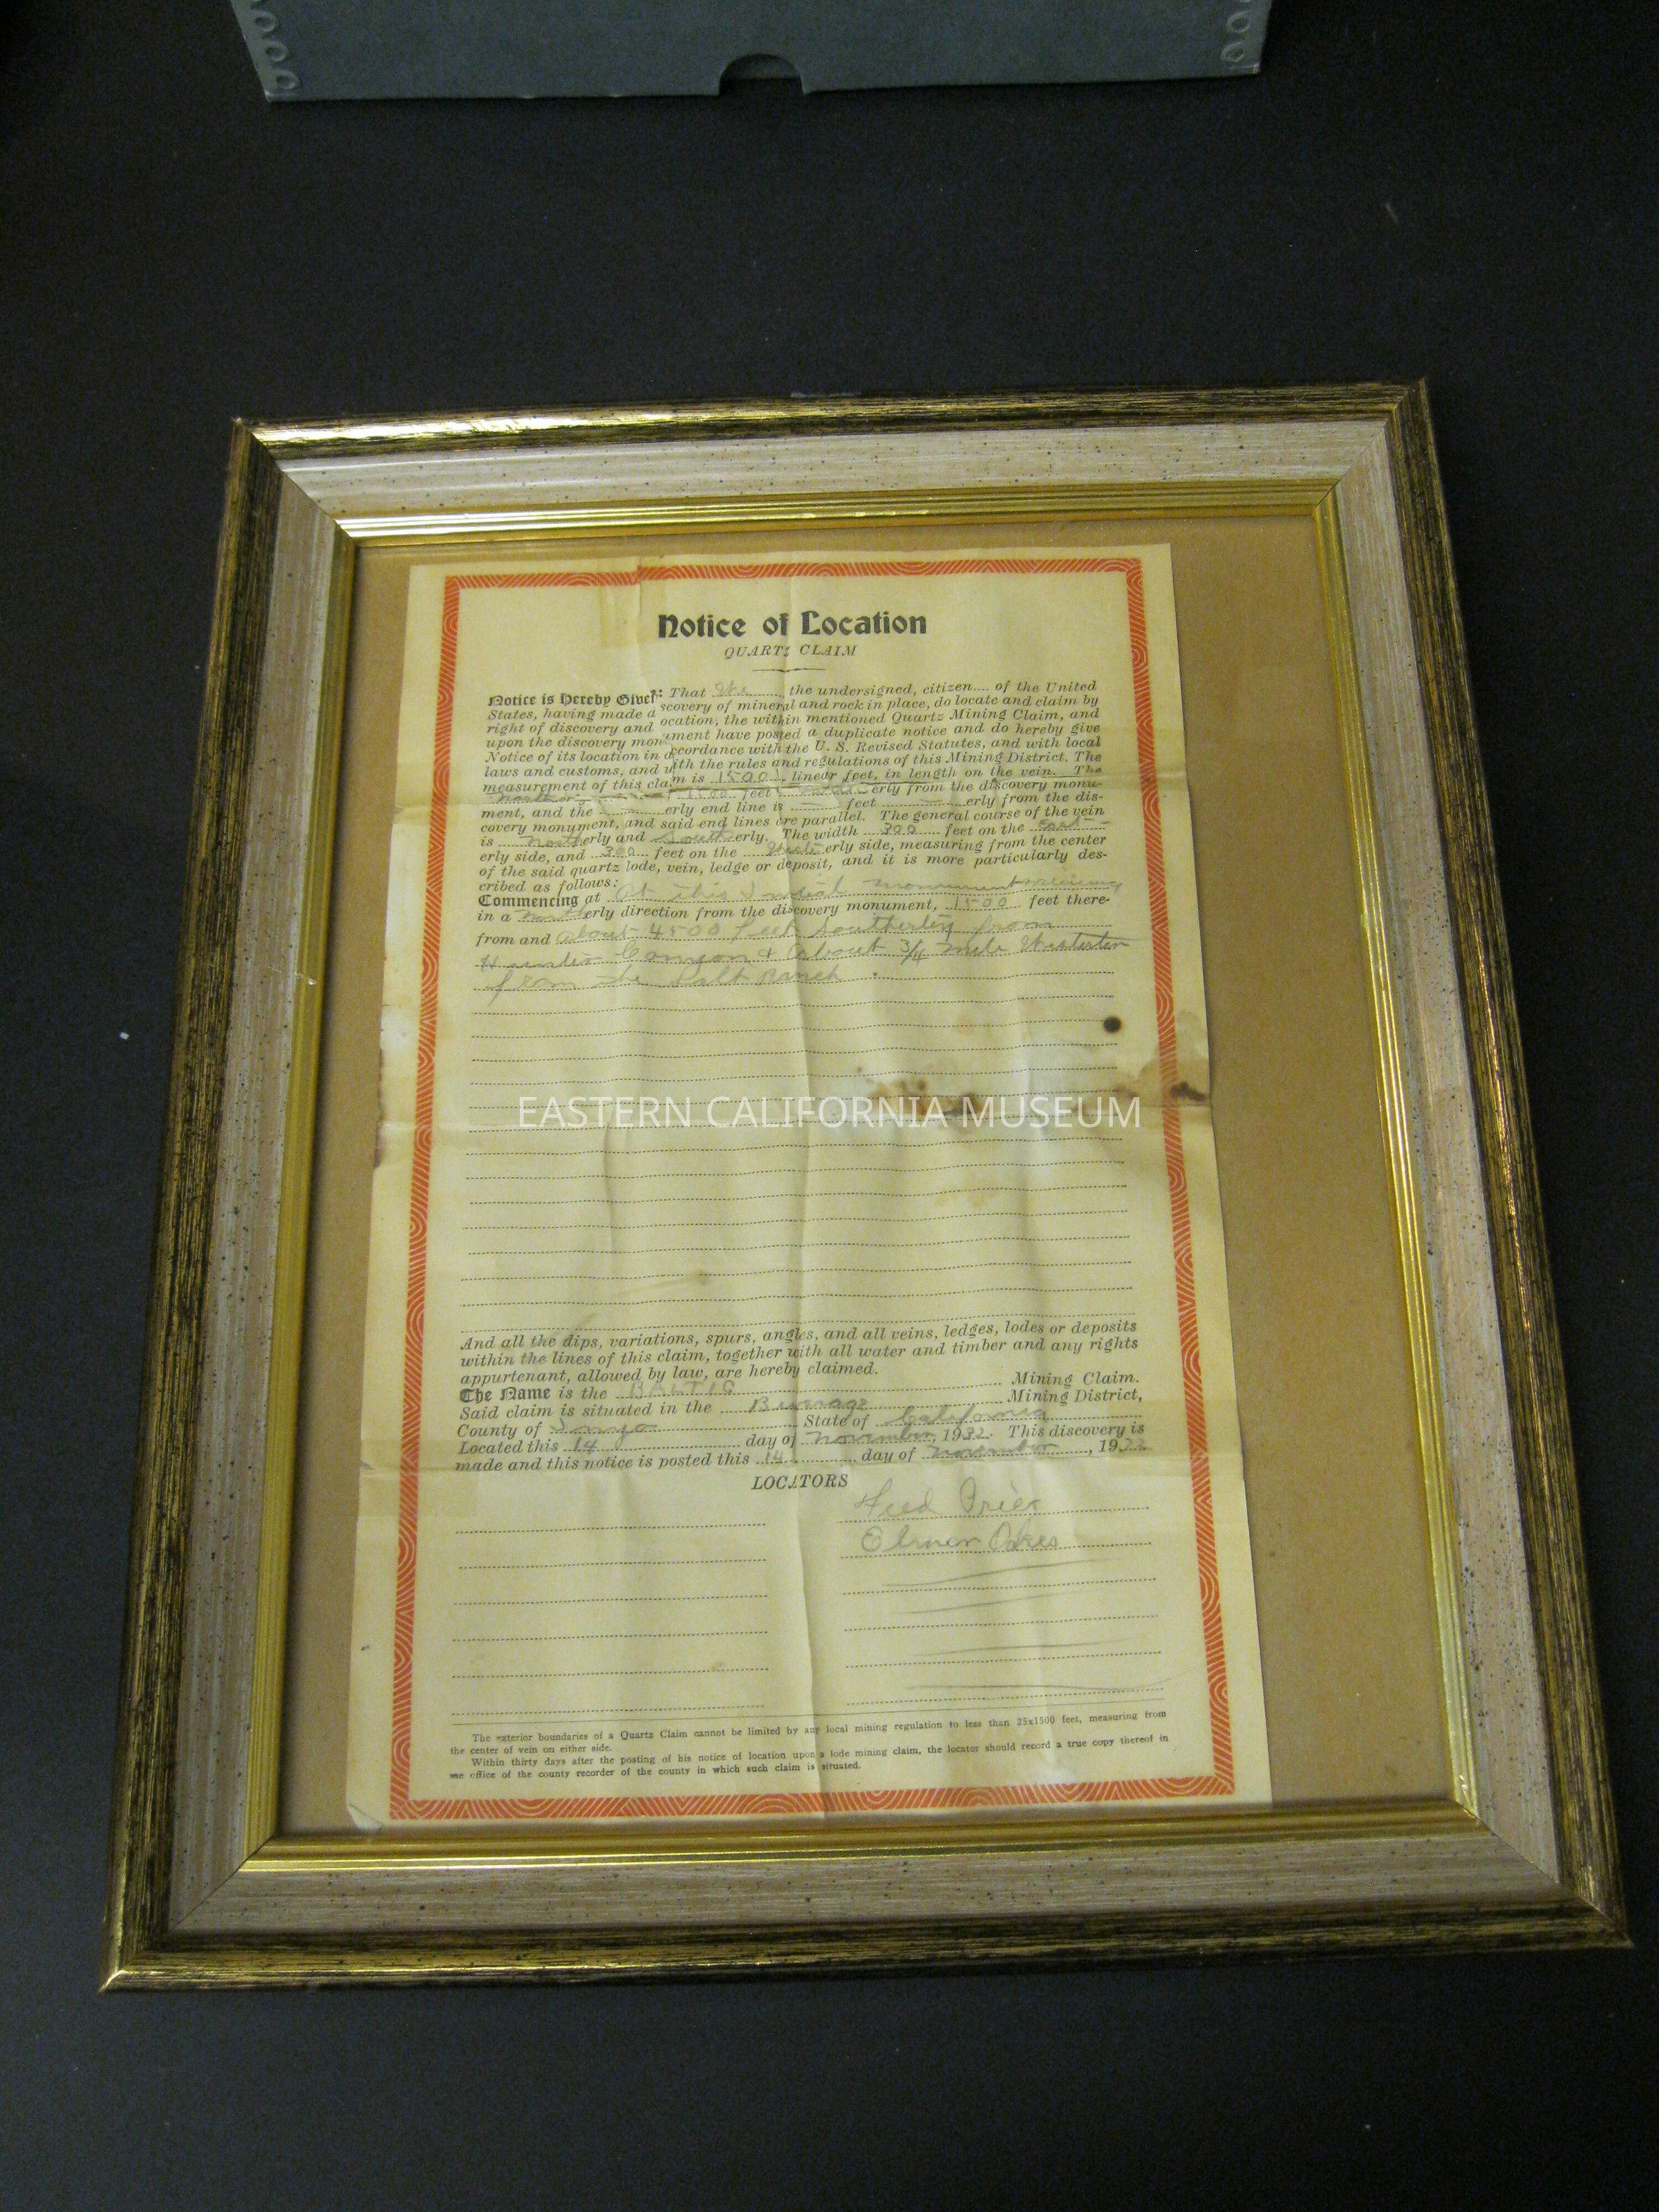 Notice of Location
QUARTZ CLAIM
Notice is Hereby Give : That We, the undersigned, citizen.... of the United
States, having made d scovery of mineral and rock in place, do locate and claim by
right of discovery and ocation, the within mentioned Quartz Mining Claim, and
upon the discovery mon ument have posted a duplicate notice and do hereby give
Notice of its location in a ccordance with the U. S. Revised Statutes, and with local
laws and customs, and with the rules and regulations of this Mining District. The
measurement of this claim is 1500 linear feet, in length on the vein. The
1500 feet erly from the discovery monu-
ment, and the erly end line is feet erly from the dis-
covery monument, and said end lines are parallel. The general course of the vein
is northerly and Southerly. The width 300 feet on the East
erly side, and 300 feet on the erly side, measuring from the center
of the said quartz lode, vein, ledge or deposit, and it is more particularly des-
cribed as follows:
Commencing at At this Initial monument + running
in a northerly direction from the discovery monument, 1500 feet there-
from and about 4500 feet Southerly from
Canyon & about 3/4 mile
from the Salt Ranch
EASTERN CALIFORNIA MUSEUM
And all the dips, variations, spurs, angles, and all veins, ledges, lodes or deposits
within the lines of this claim, together with all water and timber and any rights
appurtenant, allowed by law, are hereby claimed.
The Name is the BALTIC Mining Claim.
Said claim is situated in the Mining District,
County of Inyo State of California
Located this 14 day of November, 1932. This discovery is
made and this notice is posted this 14 day of November, 1932
LOCATORS
Fred
Elmer Oakes
The exterior boundaries of a Quartz Claim cannot be limited by any local mining regulation to less than 25x1500 feet, measuring from
the center of vein on either side.
Within thirty days after the posting of his notice of location upon a lode mining claim, the locator should record a true copy thereof in
office of the county recorder of the county in which such claim is situated.